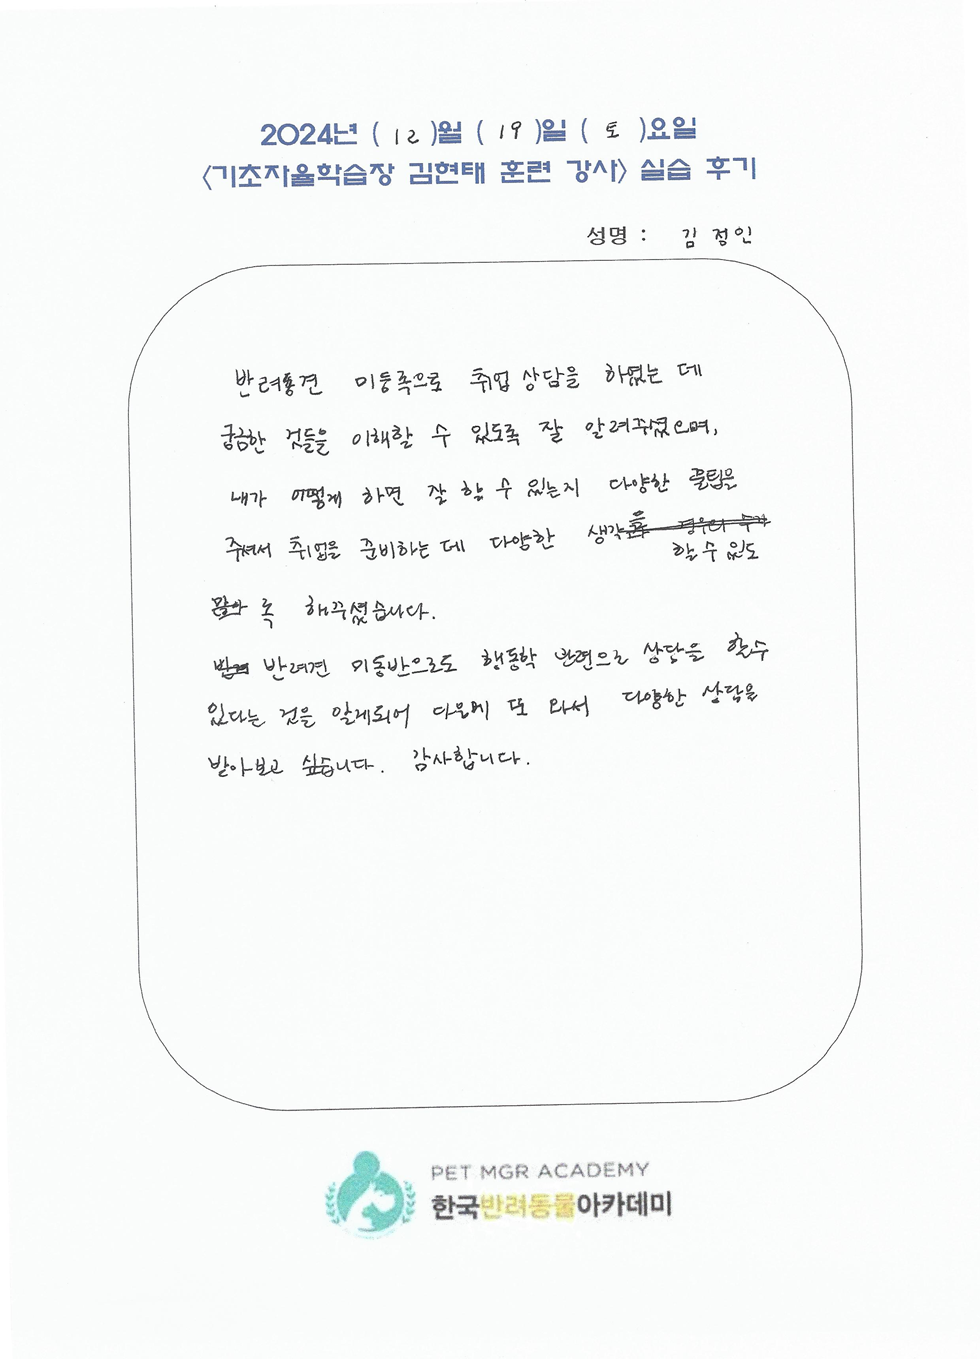 2024년 ( 12 )월 ( 19 )일 ( 토 )요일
<기초자율학습장 김현태 훈련 강사> 실습 후기
성명 : 김정인
반려동견 미등록으로 취업 상담을 하였는 데
궁금한 것들을 이해할 수 있도록 잘 알려주셨으며,
내가 어떻게 하면 잘 할 수 있는지 다양한 꿀팁을
주셔서 취업을 준비하는 데 다양한 생각을
할 수 있도
록 해주셨습니다.
반려견 미동반으로도 행동학 관련으로 상담을 할수
있다는 것을 알게되어 다음에 또 와서 다양한 상담을
받아보고 싶습니다. 감사합니다.
PET MGR ACADEMY
한국반려동물아카데미